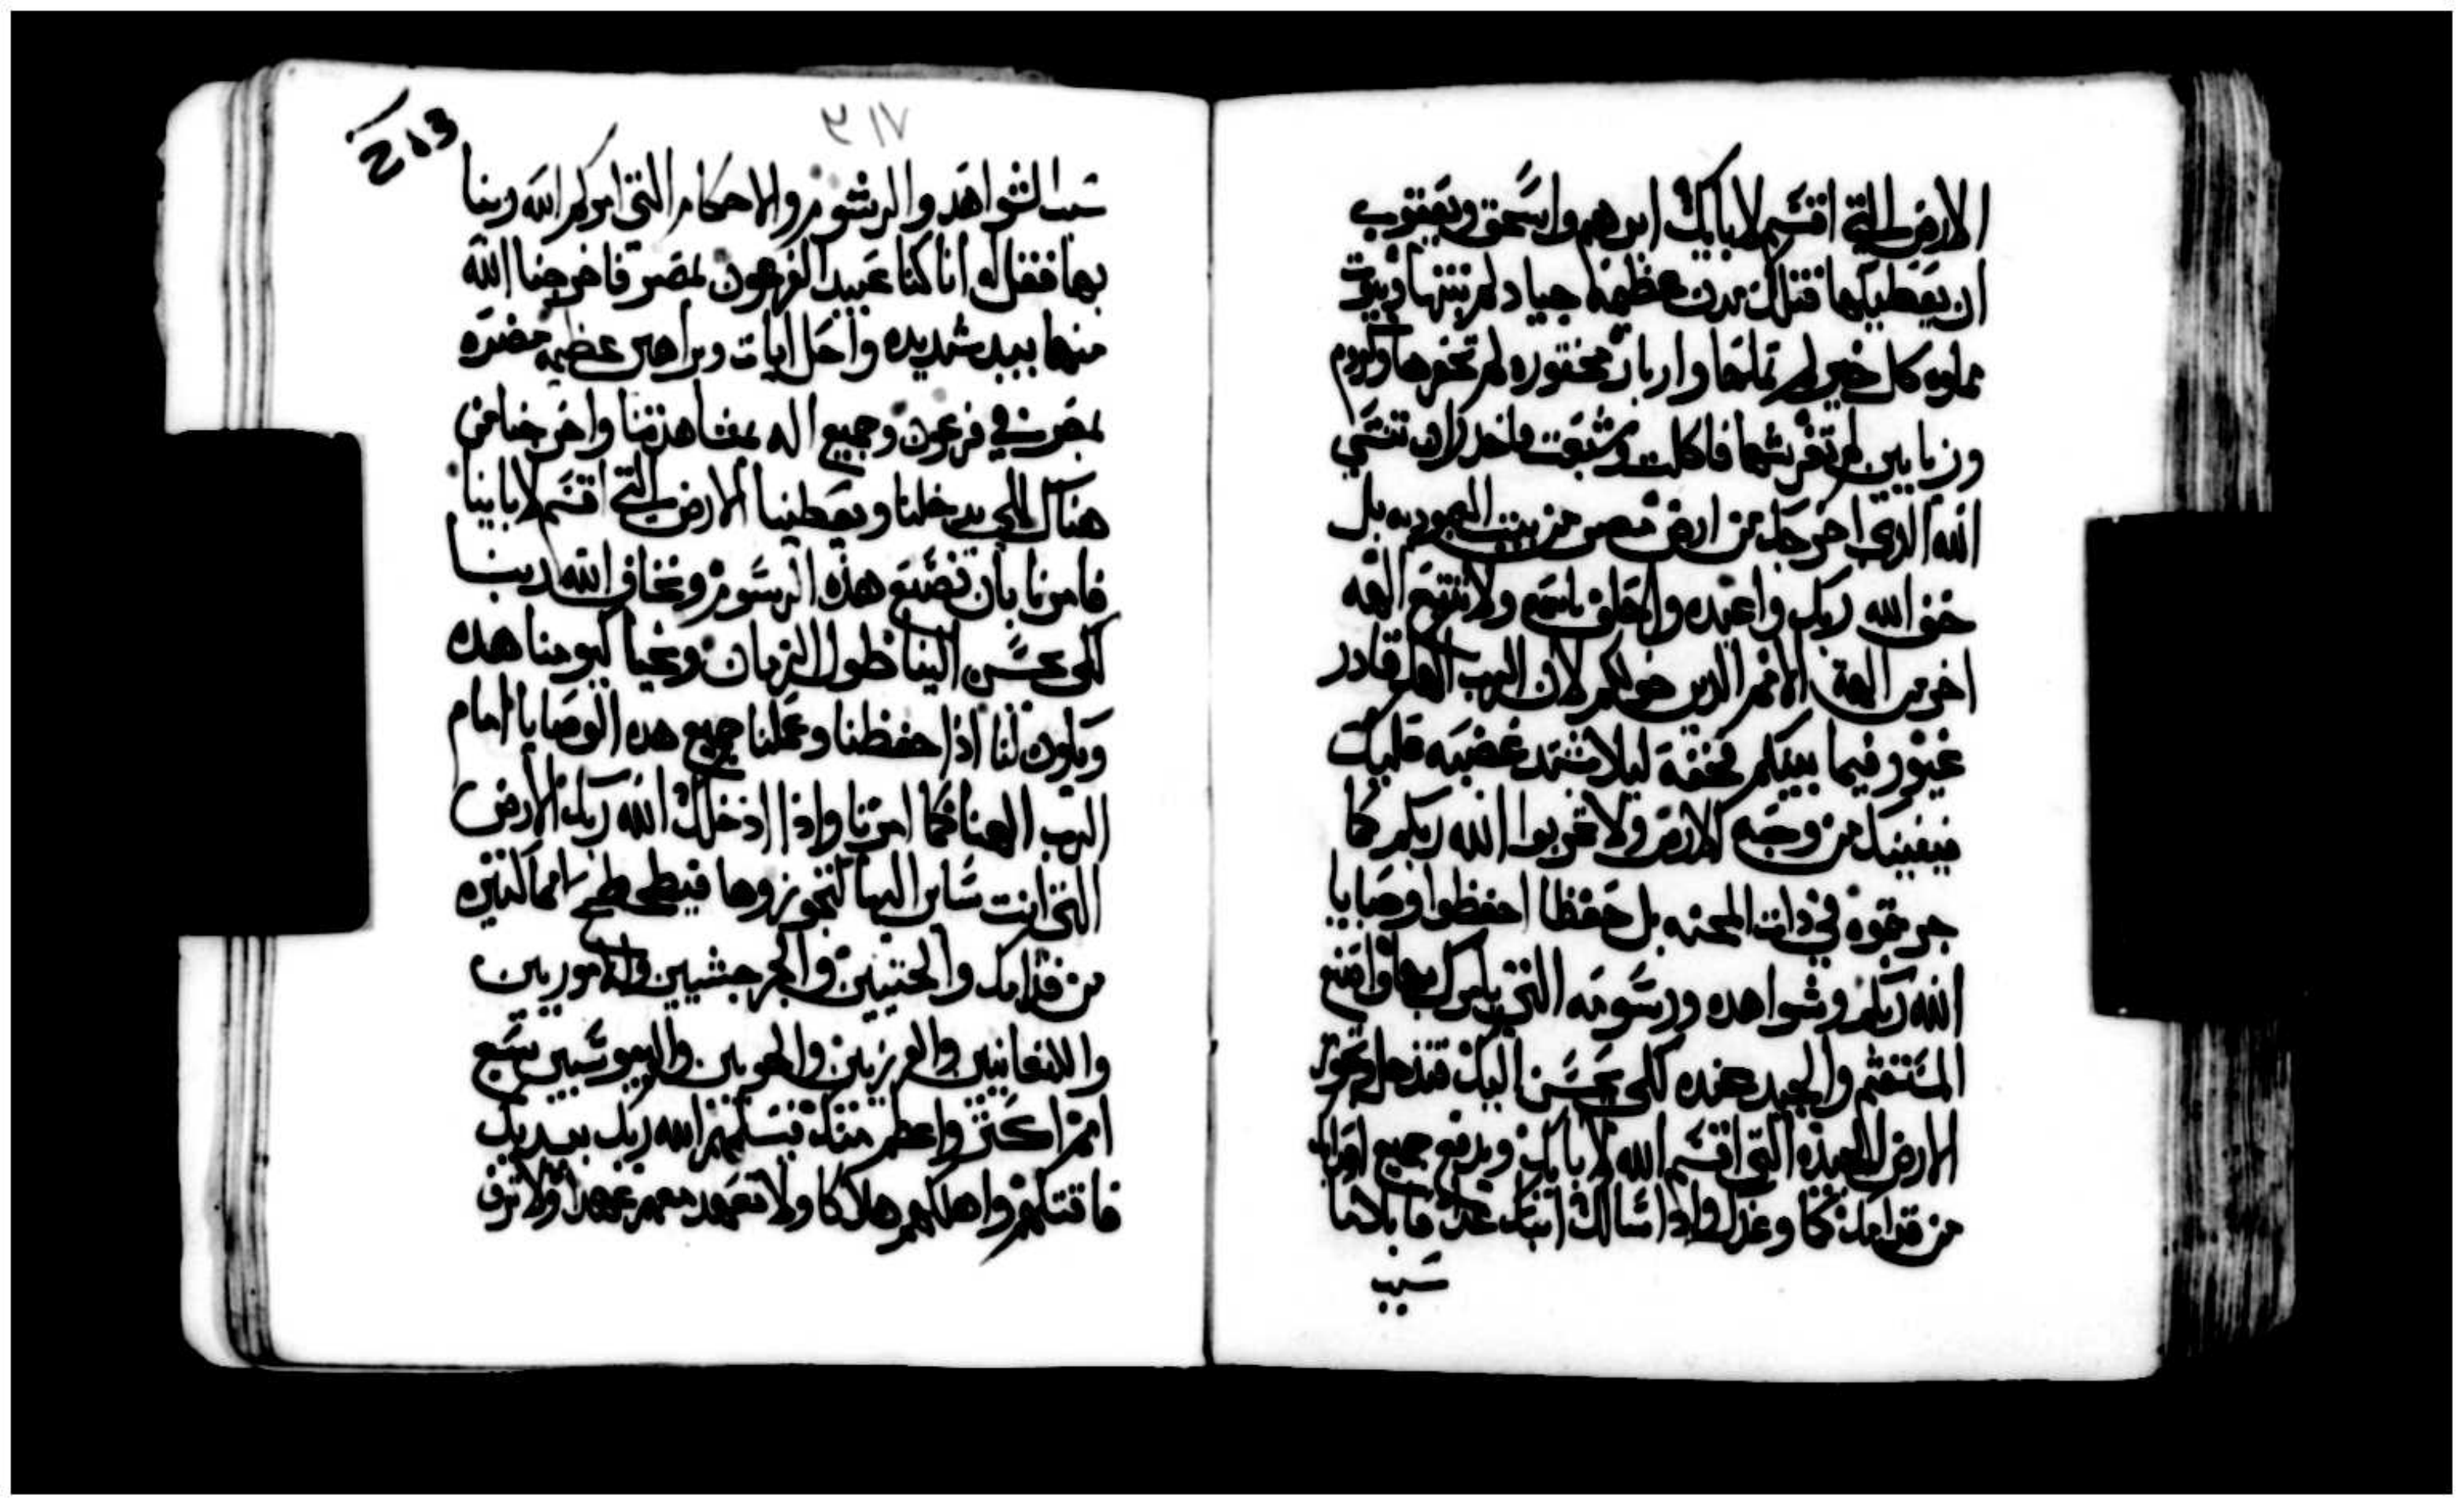 الارض التي اقسم لابايك ابرهيم واسحق ويعقوب
ان يعطيكها فتلك مدن عظيمه جياد لم تبنها وبيوت
مملوه كل خير لم تملاها وابار محفوره لم تحفرها وكروم
وزيابين لم تغرسها فاكلت وشبعت فاحدر لان تنسي
الله الدي اخرجك من ارض مصر من بيت العبوديه بل
خف الله ربك واعبده واحلف باسمه ولا تتبع الهه
اخر من الهة الامم الدين حولكم لان الرب الهك قادر
غيور فيما بينكم فخفه ليلا يشتد غضبه عليك
فيفنيك من وجه الارض ولا تجربوا الله ربكم كما
جربتموه في دات المحنه بل حفظا احفظوا وصايا
الله ربكم وشواهده ورسومه التي يامرك بها واصنع
المستقيم والجيد عنده لكي يحسن اليك فتدخل وتحوز
الارض الجيده التي اقسم الله لابايك ويدفع جميع اعدايك
من قدامك كما وعدك واذا سالك ابنك غدا قايلا ما
سبب
سبب الشواهد والرسوم والاحكام التي امركم الله ربنا
بها فقل له انا كنا عبيدا لفرعون بمصر فاخرجنا الله
منها بيد شديده واحل ايات وبراهين عظيمه مضره
بمصر في فرعون وجميع اله بمشاهدتنا واخرجنا من
هناك لكي يدخلنا ويعطينا الارض التي اقسم لاباينا
فامرنا بان نصنع هذه الرسوم ونخاف الله ربنا
لكي يحسن الينا طول الزمان ونحيا كيومنا هده
ويكون لنا اذا حفظنا وعملنا جميع هده الوصايا امام
الرب الهنا كما امرنا واذا ادخلك الله ربك الارض
التي انت ساير اليها لتحوزوها فيطحطح امما كثيره
من قدامك والحتيين والجرجشيين والاموريين
والكنعانيين والفرزيين والحويين واليبوسيين سبع
امم اكثر واعظم منك فيسلمهم الله ربك بيديك
فاقتلهم واهلكهم هلاكا ولا تعهد معهم عهدا ولا ترف
213